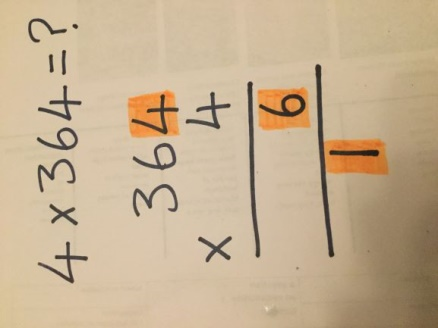 4 x 364 = ?
364
x 4
6
1